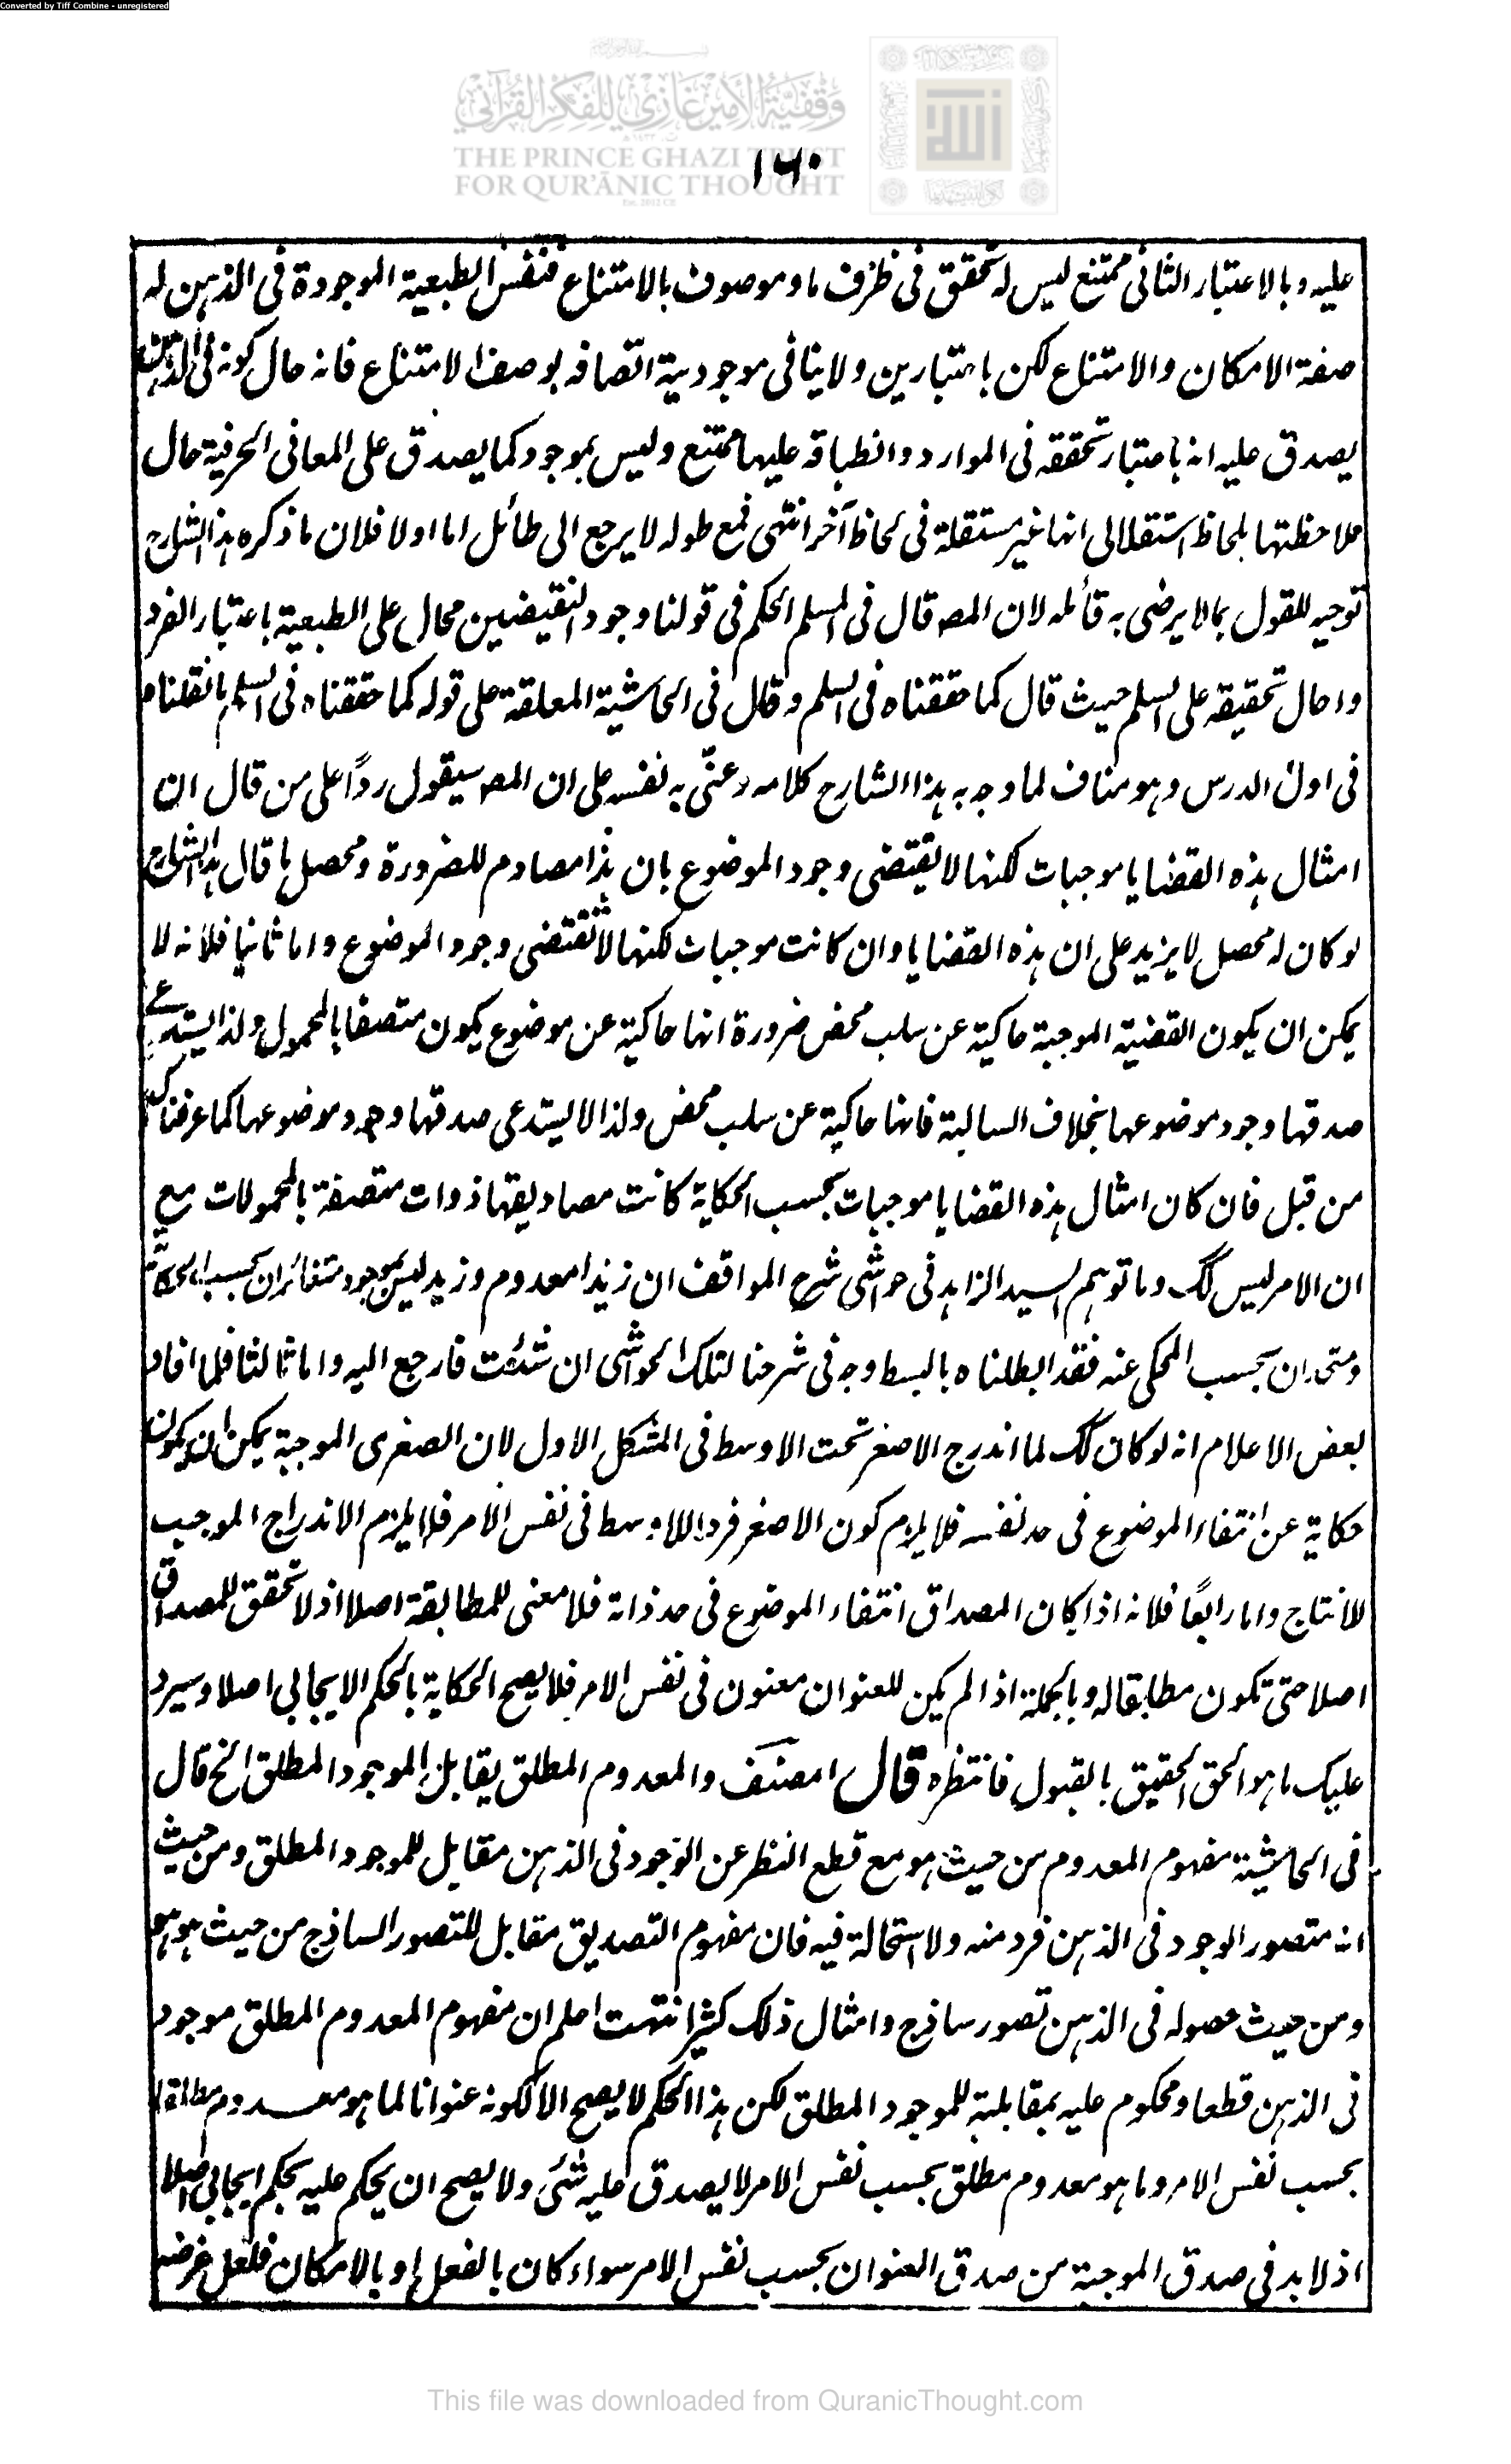 Converted by Tiff Combine - unregistered
وقفية الأمير غازي للفكر القرآني
THE PRINCE GHAZI TRUST
FOR QUR'ĀNIC THOUGHT
١٦٠
عليه وبالاعتبار الثانى ممتنع ليس له تحقق فى ظرف ما وموصوف بالامتناع فنفس الطبعية الموجودة فى الذهن له
صفة الامكان والامتناع لكن باعتبارين ولاينافى موجودية اتصافه بوصف الامتناع فانه حال كونه فى الذهن
يصدق عليه انه باعتبار تحققه فى الموارد وانطباقه عليها ممتنع وليس بموجود كما يصدق على المعانى الحرفية حال
ملاحظتها بلحاظ استقلالى انها غير مستقلة فى لحاظ آخر انتهى فمع طوله لا يرجع الى طائل اما اولا فلان ما ذكره هذا الشارح
توجيه للقول بمالا يرضى به قائله لان المصـ قال فى السلم الحكم فى قولنا وجود النقيضين محال على الطبعية باعتبار الفرد
واحال تحقيقه على السلم حيث قال كما حققناه فى السلم وقال فى الحاشية المعلقة على قوله كما حققناه فى السلم ما نقلناه
فى اول الدرس وهو مناف لما وجه به هذا الشارح كلامه وعنّى به نفسه على ان المصـ سيقول ردًا على من قال ان
امثال هذه القضايا موجبات لكنها لا يقتضى وجود الموضوع بان هذا مصادم للضرورة ومحصل ما قال هذا الشارح
لو كان له محصل لا يزيد على ان هذه القضايا وان كانت موجبات لكنها لا تقتضى وجود الموضوع واما ثانيا فلانه لا
يمكن ان يكون القضية الموجبة حاكية عن سلب محض ضرورة انها حاكية عن موضوع يكون متصفا بالمحمول ولذا يستدعى
صدقها وجود موضوعها بخلاف السالبة فانها حاكية عن سلب محض ولذا لا يستدعى صدقها وجود موضوعها كما عرفناك
من قبل فان كان امثال هذه القضايا موجبات بحسب الحكاية كانت مصاديقها ذوات متصفة بالمحمولات مع
ان الامر ليس كك وما توهم السيد الزاهد فى حواشى شرح المواقف ان زيدا معدوم وزيد ليس بموجود متغائران بحسب الحكاية
ومتحدان بحسب المحكى عنه فقد ابطلناه بابسط وجه فى شرحنا لتلك الحواشى ان شئت فارجع اليه واما ثالثا فلما افاد
بعض الاعلام انه لو كان كك لما اندرج الاصغر تحت الاوسط فى الشكل الاول لان الصغرى الموجبة يمكن ان يكون
حكاية عن انتفاء الموضوع فى حد نفسه فلا يلزم كون الاصغر فردا للاوسط فى نفس الامر فلا يلزم الاندراج الموجب
للانتاج واما رابعًا فلانه اذا كان المصداق انتفاء الموضوع فى حد ذاته فلا معنى للمطابقة اصلا اذ لا تحقق للمصداق
اصلا حتى تكون مطابقا له وبالجملة اذا لم يكن للعنوان معنون فى نفس الامر فلا يصح الحكاية بالحكم الايجابى اصلا وسيرد
عليك ما هو الحق الحقيق بالقبول فانتظره قال المصنف والمعدوم المطلق يقابل الموجود المطلق الخ قال
فى الحاشية مفهوم المعدوم من حيث هو مع قطع النظر عن الوجود فى الذهن مقابل للموجود المطلق ومن حيث
انه متصور الوجود فى الذهن فرد منه ولا استحالة فيه فان مفهوم التصديق مقابل للتصور الساذج من حيث هو هو
ومن حيث حصوله فى الذهن تصور ساذج وامثال ذلك كثيرا نتهت اعلم ان مفهوم المعدوم المطلق موجود
فى الذهن قطعا ومحكوم عليه بمقابلية للموجود المطلق لكن هذا الحكم لا يصح الا لكونه عنوانا لما هو معدوم مطلقا
بحسب نفس الامر وما هو معدوم مطلق بحسب نفس الامر لا يصدق عليه شئ ولا يصح ان يحكم عليه بحكم ايجابى اصلا
اذ لا بد فى صدق الموجبة من صدق العنوان بحسب نفس الامر سواء كان بالفعل او بالامكان فلعل غرضه
This file was downloaded from QuranicThought.com